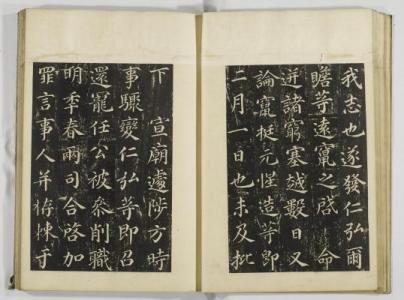 我志也遂發仁弘爾
瞻等遠竄之啓 命
迸諸窮塞越數日又
論竄挺元惺造等即
二月一日也未及批
下 宣廟遽陟方時
事驟變仁弘等即召
還寵任公被參削職
明秊春兩司合啓加
罪言事人并栫棘于